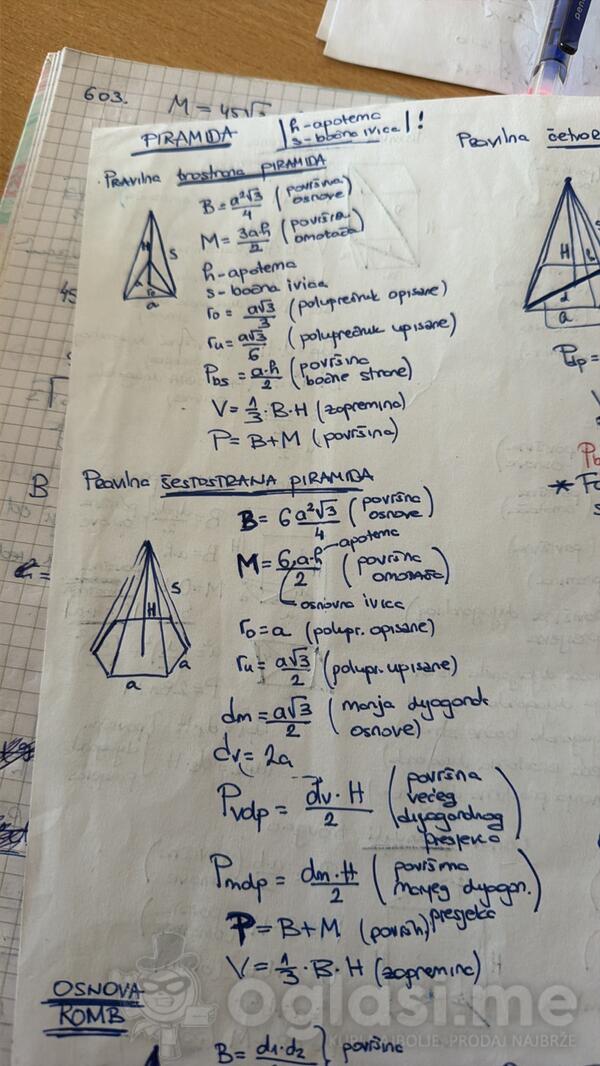 603. M = 45√3
PIRAMIDA
h-apotema
s-bočna ivica !
Pravilna trostrana PIRAMIDA
B = a²√3/4 (površina osnove)
M = 3a·h/2 (površina omotača)
h-apotema
s-bočna ivica
ro = a√3/3 (poluprečnik opisane)
ru = a√3/6 (poluprečnik upisane)
Pbs = a·h/2 (površina bočne strane)
V = 1/3 · B · H (zapremina)
P = B + M (površina)
H
s
a
Pravilna ŠESTOSTRANA PIRAMIDA
B = 6 a²√3/4 (površina osnove)
M = 6·a·h/2 (površina omotača)
apotema
osnovna ivica
ro = a (polupr. opisane)
ru = a√3/2 (polupr. upisane)
dm = a√3/2 (manja dijagonala osnove)
dv = 2a
Pvdp = dv · H/2 (površina većeg dijagonalnog presjeka)
Pmdp = dm · H/2 (površina manjeg dijagon. presjeka)
P = B + M (površ)
V = 1/3 · B · H (zapremina)
H
s
a
a
OSNOVA
ROMB
B = d1·d2 površina
Pravilna četvor
H
d
a
B
Oglasi.me
KUPI NAJBOLJE, PRODAJ NAJBRŽE